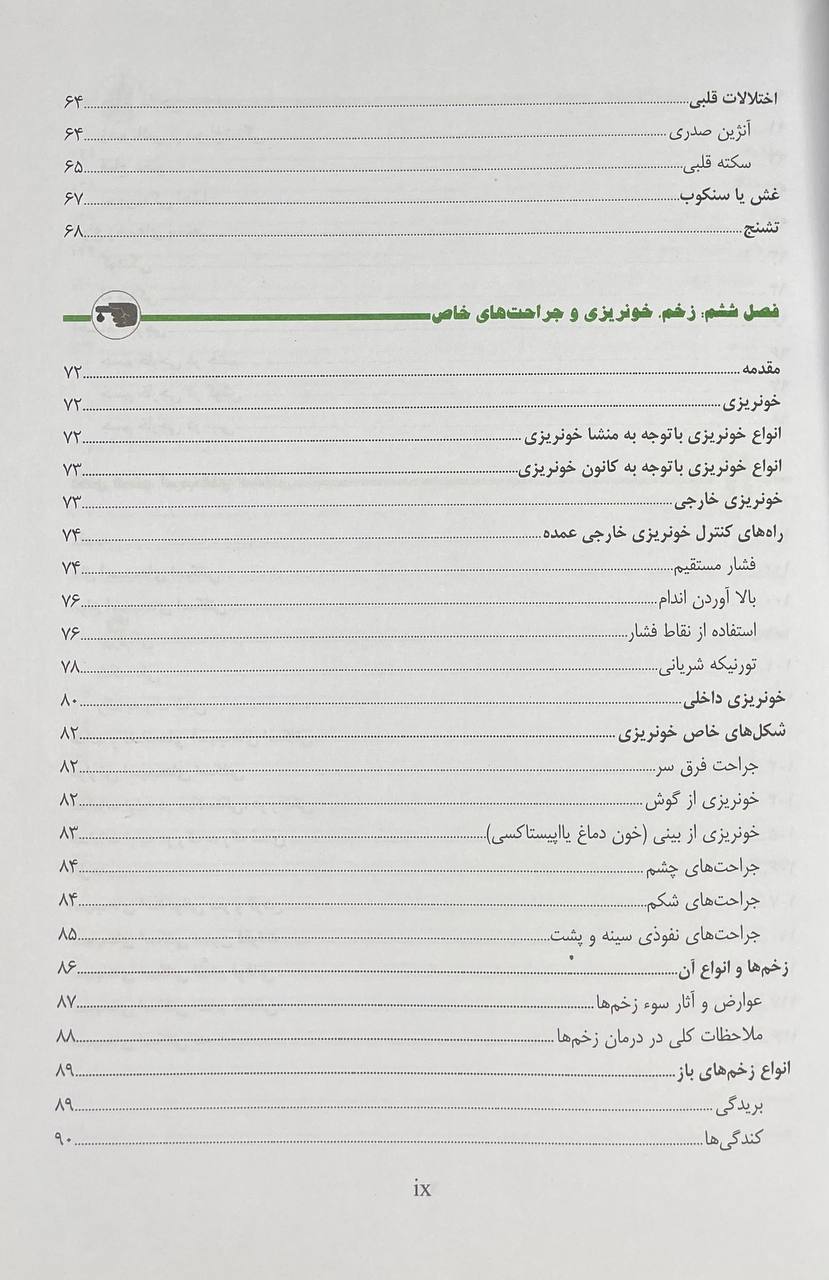 اختلالات قلبی ۶۴
آنژین صدری ۶۴
سکته قلبی ۶۵
غش یا سنکوپ ۶۷
تشنج ۶۸
فصل ششم: زخم، خونریزی و جراحت‌های خاص
مقدمه ۷۲
خونریزی ۷۲
انواع خونریزی باتوجه به منشا خونریزی ۷۲
انواع خونریزی باتوجه به کانون خونریزی ۷۳
خونریزی خارجی ۷۳
راه‌های کنترل خونریزی خارجی عمده ۷۴
فشار مستقیم ۷۴
بالا آوردن اندام ۷۶
استفاده از نقاط فشار ۷۶
تورنیکه شریانی ۷۸
خونریزی داخلی ۸۰
شکل‌های خاص خونریزی ۸۲
جراحت فرق سر ۸۲
خونریزی از گوش ۸۲
خونریزی از بینی (خون دماغ یااپیستاکسی) ۸۳
جراحت‌های چشم ۸۴
جراحت‌های شکم ۸۴
جراحت‌های نفوذی سینه و پشت ۸۵
زخم‌ها و انواع آن ۸۶
عوارض و آثار سوء زخم‌ها ۸۷
ملاحظات کلی در درمان زخم‌ها ۸۸
انواع زخم‌های باز ۸۹
بریدگی ۸۹
کندگی‌ها ۹۰
ix